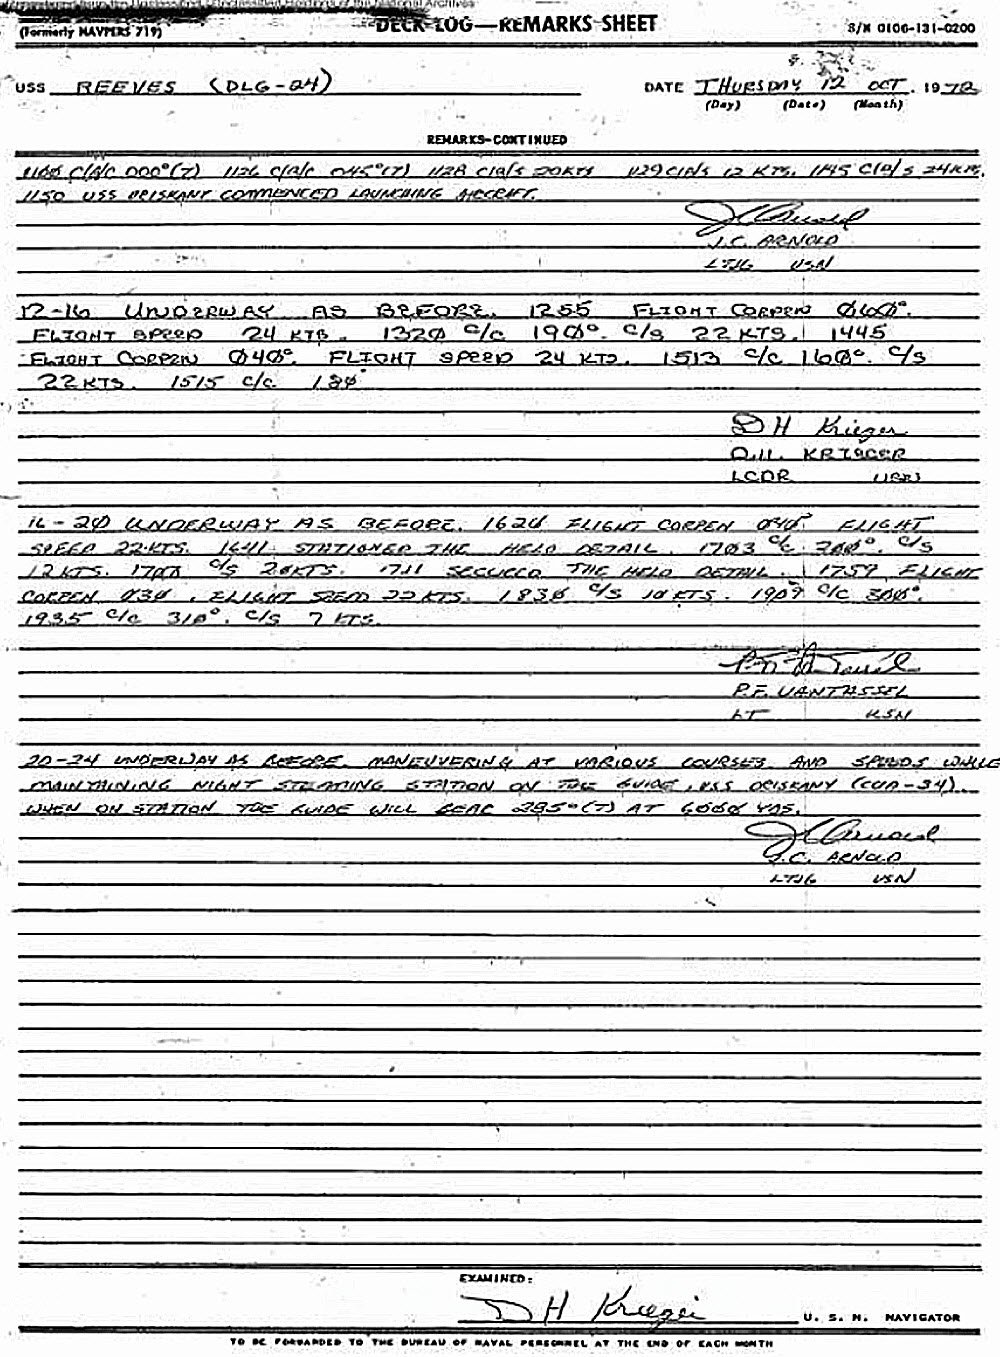 DECK LOG—REMARKS SHEET
(Formerly NAVPERS 719)
S/N 0106-131-0200
USS REEVES (DLG-24)
DATE THURSDAY 12 OCT. 1972
(Day) (Date) (Month)
REMARKS-CONTINUED
C/A/C 000°(T) 1126 C/A/C 045°(T) 1128 C/A/S 20KTS 1129 C/A/S 12 KTS. 1145 C/A/S 24KTS.
1150 USS ORISKANY COMMENCED LAUNCHING AIRCRAFT.
J.C. ARNOLD
LTJG USN
12-16 UNDERWAY AS BEFORE. 1255 FLIGHT CORPEN Ø6Ø°.
FLIGHT SPEED 24 KTS. 132Ø C/C 19Ø°. C/S 22 KTS. 1445
FLIGHT CORPEN Ø4Ø°. FLIGHT SPEED 24 KTS. 1513 C/C 16Ø°. C/S
22 KTS. 1515 C/C 18Ø°
D H Krieger
D.H. KRIEGER
LCDR USN
16-2Ø UNDERWAY AS BEFORE. 162Ø FLIGHT CORPEN Ø4Ø°. FLIGHT
SPEED 22 KTS. 1641 STATIONED THE HELO DETAIL. 1703 C/C. C/S
12 KTS. C/S 20 KTS. 1711 SECURED THE HELO DETAIL. 1759 FLIGHT
CORPEN Ø3Ø. FLIGHT SPEED 22 KTS. 183Ø C/S 10 KTS. 1909 C/C 3ØØ°.
1935 C/C 31Ø°. C/S 7 KTS.
P.F. VANTASSEL
LT USN
20-24 UNDERWAY AS BEFORE. MANEUVERING AT VARIOUS COURSES AND SPEEDS WHILE
MAINTAINING NIGHT STEAMING STATION ON THE GUIDE, USS ORISKANY (CVA-34).
WHEN ON STATION THE GUIDE WILL BEAR 285°(T) AT 6000 YDS.
J.C. ARNOLD
LTJG USN
EXAMINED:
D H Krieger
U. S. N. NAVIGATOR
TO BE FORWARDED TO THE BUREAU OF NAVAL PERSONNEL AT THE END OF EACH MONTH